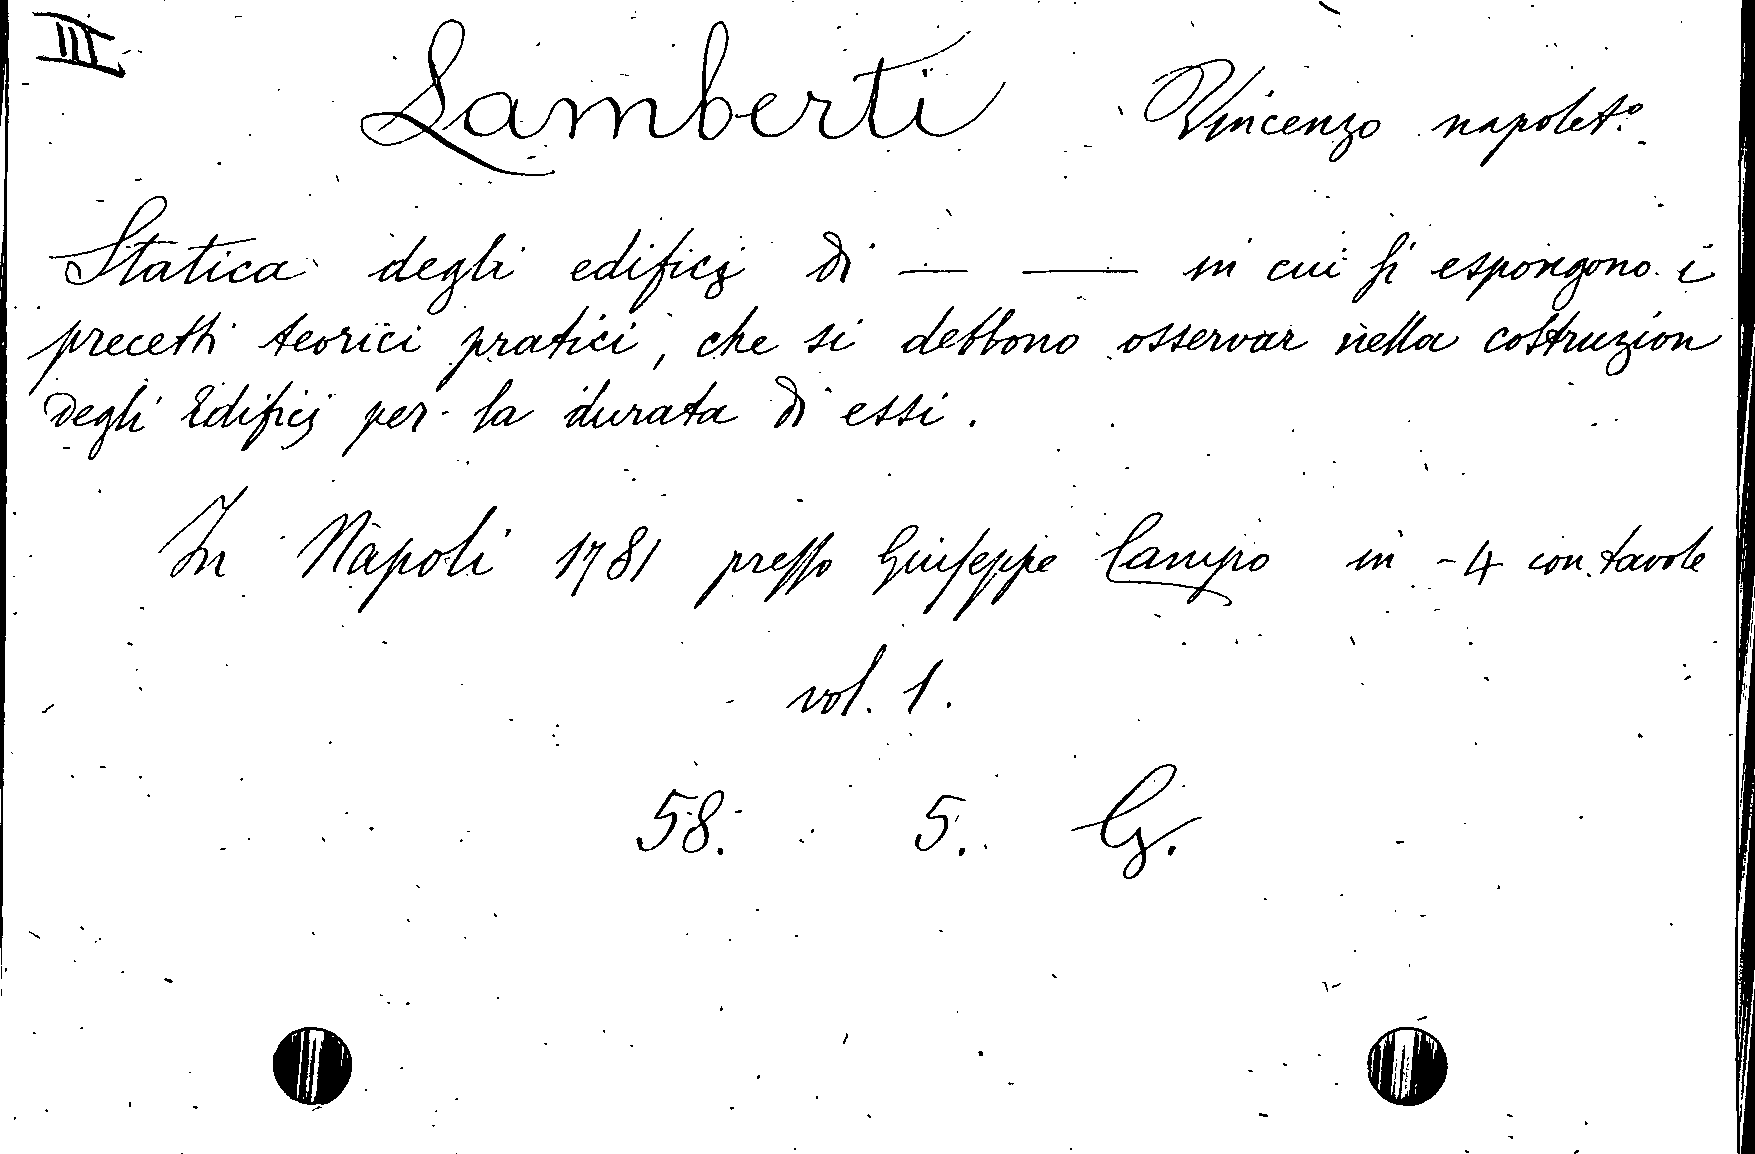 III
Lamberti Vincenzo napolet.º
Statica degli edificj di — — in cui si espongono i
precetti teorici pratici, che si debbono osservar nella costruzion
degli Edificj per la durata di essi.
In Napoli 1781 presso Giuseppe Campo in -4 con tavole
vol. 1.
58. 5. G.